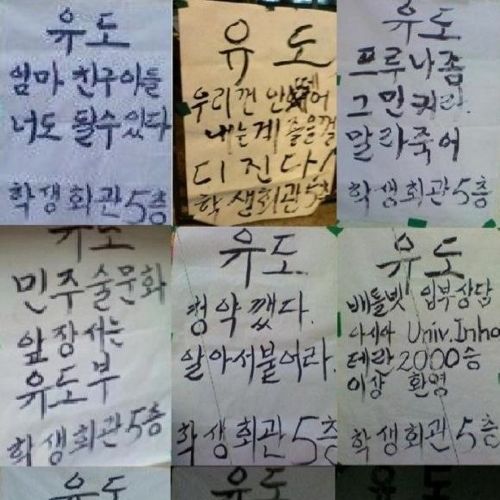 유도
엄마 친구아들
너도 될수있다
학생회관 5층
유도
우리껀 안떼어
내는게 좋은걸
디진다!
학생회관 5층
유도
프루나좀
그만켜라.
말라죽어
학생회관 5층
유도
민주술문화
앞장서는
유도부
학생회관 5층
유도.
청약깼다.
알아서붙어라.
학생회관 5층
유도
배틀넷 입부상담
아시아 Univ.Inha
테란 2000승
이상 환영
학생회관 5층
유도
유도
유도